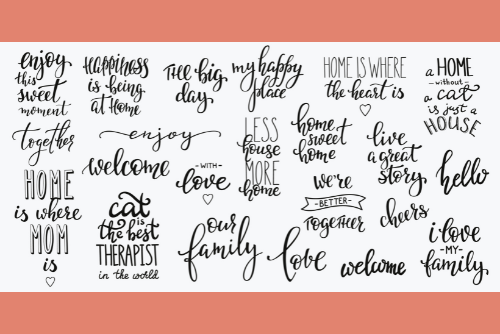 enjoy
this
sweet
moment
Happiness
is being
at Home
The big
day
my happy
place
HOME IS WHERE
the heart is
a HOME
-without-
a cat
is just a
HOUSE
together
enjoy
LESS
house
MORE
home
home
sweet
home
live
a great
story
hello
welcome
-WITH-
love
HOME
is where
MOM
is
cat
is
the best
THERAPIST
in the world
we're
-BETTER-
TOGETHER
cheers
our
family
love
welcome
i love
-MY-
family